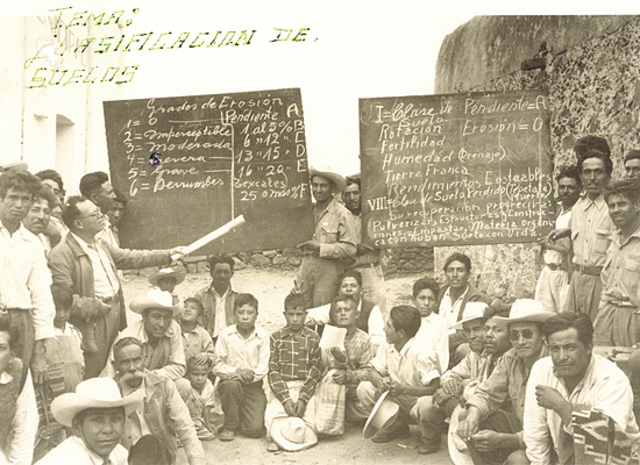 TEMA:
ASIFICACION DE.
SUELOS
Grados de Erosión
1= 0 Pendiente A
2= Imperseptible 1 al 5% B
3= Moderada 6 " 12 " C
4= Severa 13 " 15 " D
5= Grave 16 " 20 " E
6= Derrumbes 25 o más % F
I= Clase de Pendiente= A
Suelo
Rotación Erosión= 0
Fertilidad
Humedad (Drenaje)
Tierra Franca
Rendimientos Costeables
VIII= Suelo Perdido (Tepetate)
Su recuperación progreciva:
Pulverizar Estructuras
Empastar, Materia
ca con humus Suelo con Vida